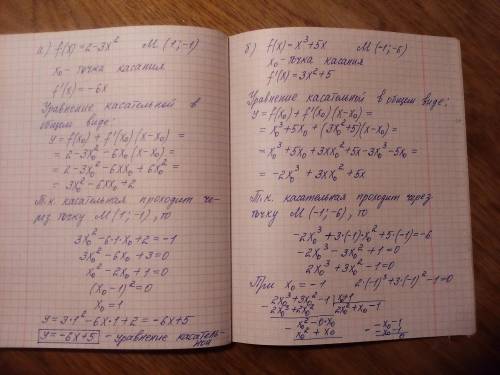 а) f(x) = 2-3x² M(1;-1)
x₀ - точка касания
f'(x) = -6x
Уравнение касательной в
общем виде:
y = f(x₀) + f'(x₀)(x-x₀) =
= 2-3x₀² - 6x₀(x-x₀) =
= 2-3x₀² - 6xx₀ + 6x₀² =
= 3x₀² - 6xx₀ + 2
Т.к. касательная проходит че-
рез точку M(1;-1), то
3x₀² - 6·1·x₀ + 2 = -1
3x₀² - 6x₀ + 3 = 0
x₀² - 2x₀ + 1 = 0
(x₀-1)² = 0
x₀ = 1
y = 3·1² - 6x·1 + 2 = -6x + 5
y = -6x + 5 - уравнение касатель-
ной
б) f(x) = x³ + 5x M(-1;-6)
x₀ - точка касания
f'(x) = 3x² + 5
Уравнение касательной в общем виде:
y = f(x₀) + f'(x₀)(x-x₀) =
= x₀³ + 5x₀ + (3x₀² + 5)(x-x₀) =
= x₀³ + 5x₀ + 3xx₀² + 5x - 3x₀³ - 5x₀ =
= -2x₀³ + 3xx₀² + 5x
Т.к. касательная проходит через
точку M(-1;-6), то
-2x₀³ + 3·(-1)·x₀² + 5·(-1) = -6
-2x₀³ - 3x₀² + 1 = 0
2x₀³ + 3x₀² - 1 = 0
При x₀ = -1 2·(-1)³ + 3·(-1)² - 1 = 0
- 2x₀³ + 3x₀² - 1 | x₀+1
2x₀³ + 2x₀² 2x₀² + x₀ - 1
- x₀² - 0·x₀ - -x₀ - 1
x₀² + x₀ -x₀ - 1